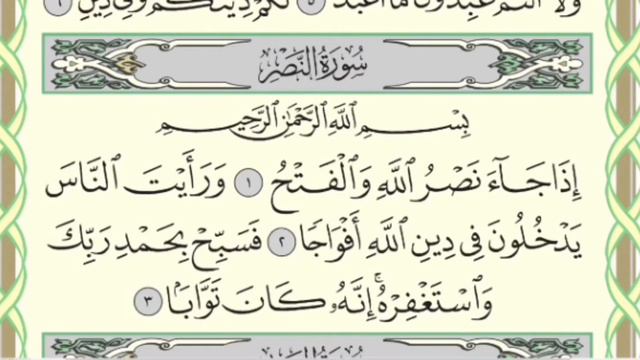 ولا أنتم عبدون ما أعبد ٥ لكم دينكم ولي دين ٦
سُورَةُ النَّصْرِ
بِسْمِ ٱللَّهِ ٱلرَّحْمَٰنِ ٱلرَّحِيمِ
إِذَا جَآءَ نَصْرُ ٱللَّهِ وَٱلْفَتْحُ ١ وَرَأَيْتَ ٱلنَّاسَ
يَدْخُلُونَ فِى دِينِ ٱللَّهِ أَفْوَاجًا ٢ فَسَبِّحْ بِحَمْدِ رَبِّكَ
وَٱسْتَغْفِرْهُ ۚ إِنَّهُۥ كَانَ تَوَّابًۢا ٣
سُورَةُ